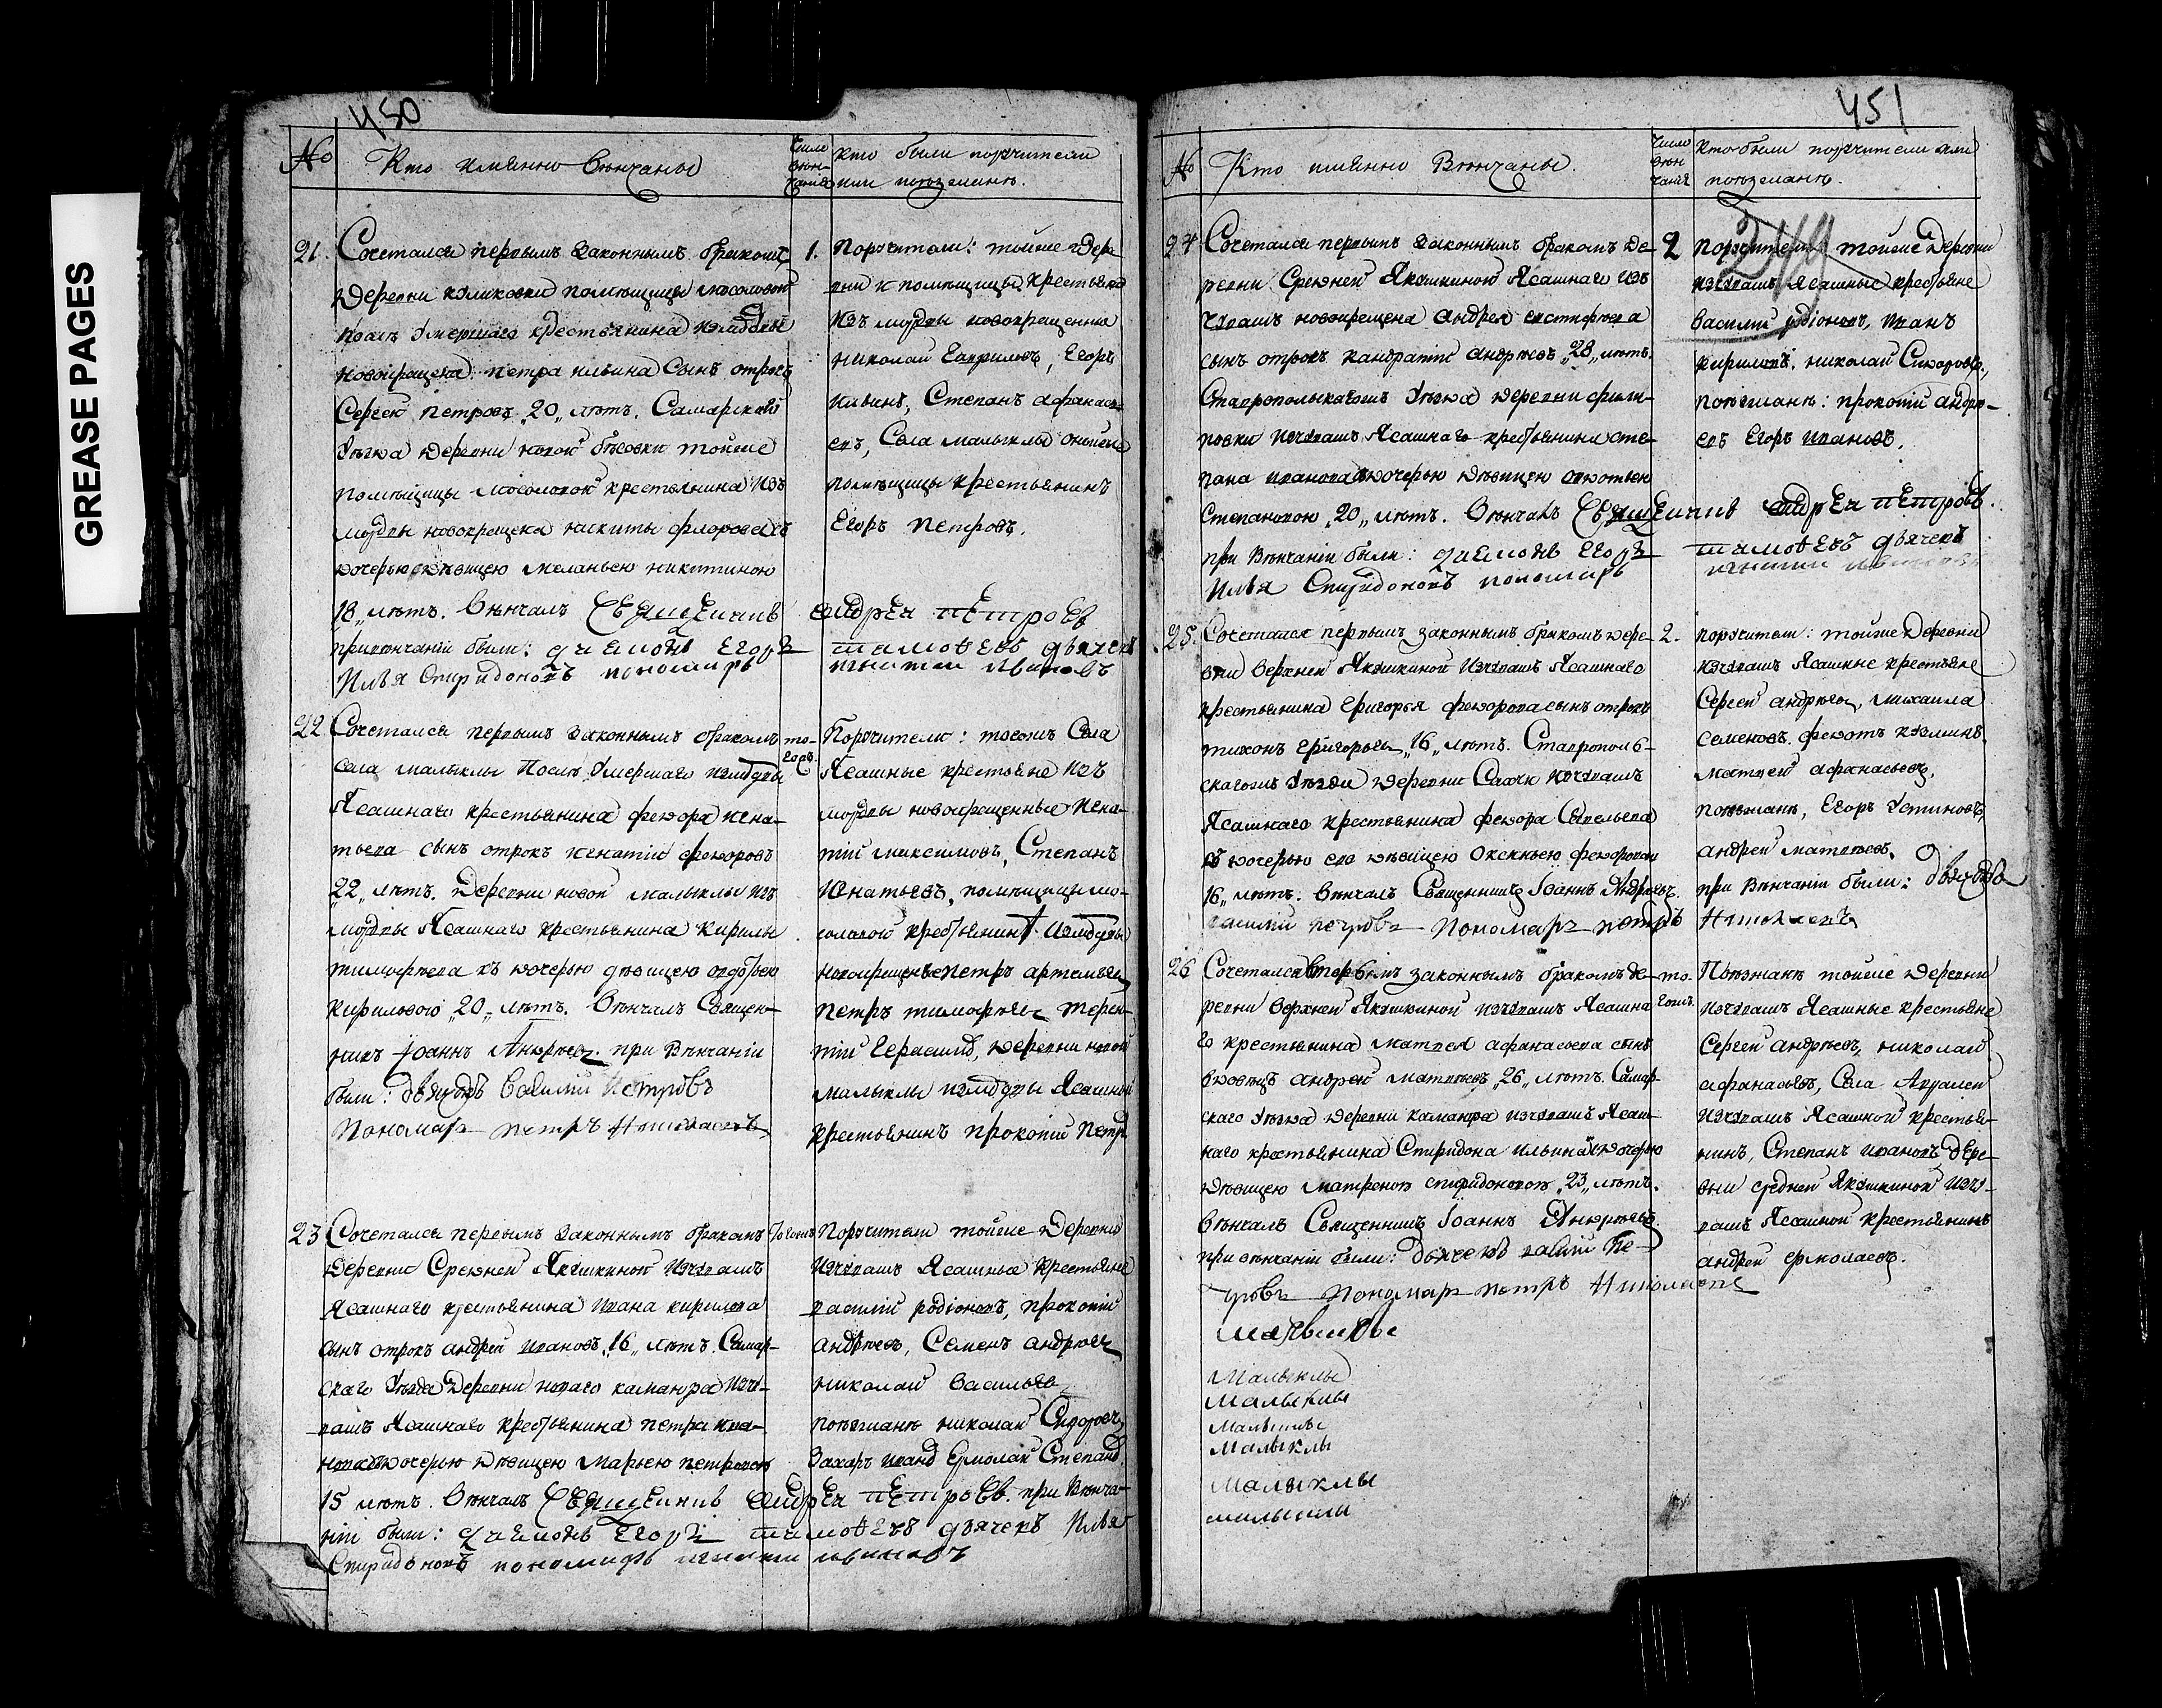 GREASE PAGES
450
№
Кто имянно венчаны
Число
вѣн
чания
кто были поручители
или поѣзжанѣ.
21.
Сочетался первымъ законнымъ бракомъ
деревни куликовки помѣщицы мосоловой
посль умершаго крестьянина измордвы
новокрещена петра ильина сынъ отрокъ
Сергей петровъ „20„ лѣтъ. Самарскаго
уѣзда деревни новой бѣсовки тойже
помѣщицы мосоловой крестьянина изъ
мордвы новокрещена никиты флорова съ
дочерью дѣвицею меланьею никитиною
18„ лѣтъ. Вѣнчалъ священникъ андрей петровъ
привѣнчаніи были: диаконъ Егоръ тимофеевъ дьячекъ
Илья Спиридоновъ пономарь игнатий ивановъ
1.
Поручители: тойже дере
вни и помѣщицы крестьяне
изъ мордвы новокрещенны
николай Гавриловъ, Егоръ
ильинъ, Степанъ афанась
евъ, Села малыклы оной же
помѣщицы крестьянинъ
Егоръ петровъ.
22
Сочетался первымъ законнымъ бракомъ
села малыклы посль умершаго измордвы
Ясашнаго крестьянина федора игна-
тьева сынъ отрокъ игнатий федоровъ
„22„ лѣтъ. Деревни новой малыклы изъ
мордвы Ясашнаго крестьянина кирилы
тимофеева съ дочерью дѣвицею
кириловою „20„ лѣтъ. Вѣнчалъ Священ-
никъ Іоаннъ Андреевъ. при вѣнчаніи
были: дьячекъ василий петровъ
пономарь петръ николаевъ
то-
гожъ.
Поручители: тогожъ Села
Ясашные крестьяне изъ
мордвы новокрещенные игна-
тий максимовъ, Степанъ
Игнатьевъ, помѣщицы мо-
соловой крестьянинъ измордвы
новокрещенъ петръ артемьевъ
петръ тимофеевъ терен-
тий Герасимовъ, деревни новой
малыклы измордвы Ясашный
крестьянинъ прокопий петр
23
Сочетался первымъ законнымъ бракомъ
деревни Средней Якушкиной изчувашъ
Ясашнаго крестьянина ивана кирилова
сынъ отрокъ андрей ивановъ „16„ лѣтъ. Самар-
скаго уѣзда деревни новаго каманура изчу-
вашъ Ясашнаго крестьянина петра ива-
нова дочерью дѣвицею Марьею петровою
15 лѣтъ. Вѣнчалъ священникъ андрей петровъ. при вѣнча-
ніи были: диаконъ Егоръ тимофеевъ дьячекъ Илья
Спиридоновъ пономарь игнатий ивановъ
Поручители тойже деревни
изчувашъ Ясашные крестьяне
василий родіоновъ, прокопий
андреевъ, Семенъ андреевъ
николай васильевъ
поѣзжанѣ николай Сидоровъ
Захаръ ивановъ Ермолай Степановъ
451
№
Кто имянно Вѣнчаны.
Число
вѣн
чания
Кто были поручители или
поѣзжанѣ.
249
24
Сочетался первымъ законнымъ бракомъ де-
ревни Средней Якушкиной Ясашнаго изъ
чувашъ новокрещена андрея евстифѣева
сынъ отрокъ кандратий андреевъ „28„ лѣтъ.
Ставропольскагожъ уѣзда деревни фили-
повки изчувашъ Ясашнаго крестьянина сте-
пана иванова дочерью дѣвицею федотьею
Степановою „20„ лѣтъ. Вѣнчалъ священникъ андрей петровъ.
при вѣнчаніи были: диаконъ Егоръ тимофеевъ дьячекъ
Илья Спиридоновъ пономарь игнатий ивановъ
2
Поручители тойже деревни
изчувашъ Ясашные крестьяне
василий родіоновъ, иванъ
кириловъ. николай Сидоровъ,
поѣзжанѣ: прокопий андре-
евъ Егоръ ивановъ.
25.
Сочетался первымъ законнымъ бракомъ дере-
вни верхней Якушкиной изчувашъ Ясашнаго
крестьянина Григорья федорова сынъ отрокъ
тихонъ Григорьевъ „16„ лѣтъ. Ставрополь-
скагожъ уѣзда деревни изчувашъ
Ясашнаго крестьянина федора Савельева
съ дочерью его дѣвицею Оксиньею федоровою
16„ лѣтъ. вѣнчалъ Священникъ Іоаннъ Андреевъ.
василий петровъ пономарь петръ николаевъ
2.
поручители: тойже деревни
изчувашъ Ясашные крестьяне
Сергей андреевъ, михаила
семеновъ. федотъ кузминъ.
матвей афанасьевъ.
поѣзжанѣ, Егоръ Устиновъ,
андрей матвеевъ.
при вѣнчаніи были: дьячекъ
26
Сочетался вторымъ законнымъ бракомъ де-
ревни верхней Якушкиной изчувашъ Ясашна
го крестьянина матвея афанасьева сынъ
вдовецъ андрей матвеевъ „26„ лѣтъ. Самар-
скаго уѣзда деревни каманра изчувашъ Ясаш-
наго крестьянина Спиридона ильина дочерью
дѣвицею матреною спиридоновою „23„ лѣтъ.
вѣнчалъ Священникъ Іоаннъ Андреевъ.
при вѣнчаніи были: дьячекъ василий Пе-
тровъ пономарь петръ николаевъ
то-
гожъ.
Поѣзжанѣ тойже деревни
изчувашъ Ясашные крестьяне
Сергей андреевъ, николай
афанасьевъ, Села
изчувашъ Ясашной крестья-
нинъ, Степанъ ивановъ дере-
вни средней Якушкиной изчу-
вашъ Ясашной крестьянинъ
андрей ермолаевъ.
Малыклы
Малыклы
Малыклы
Малыклы
Малыклы
малыклы